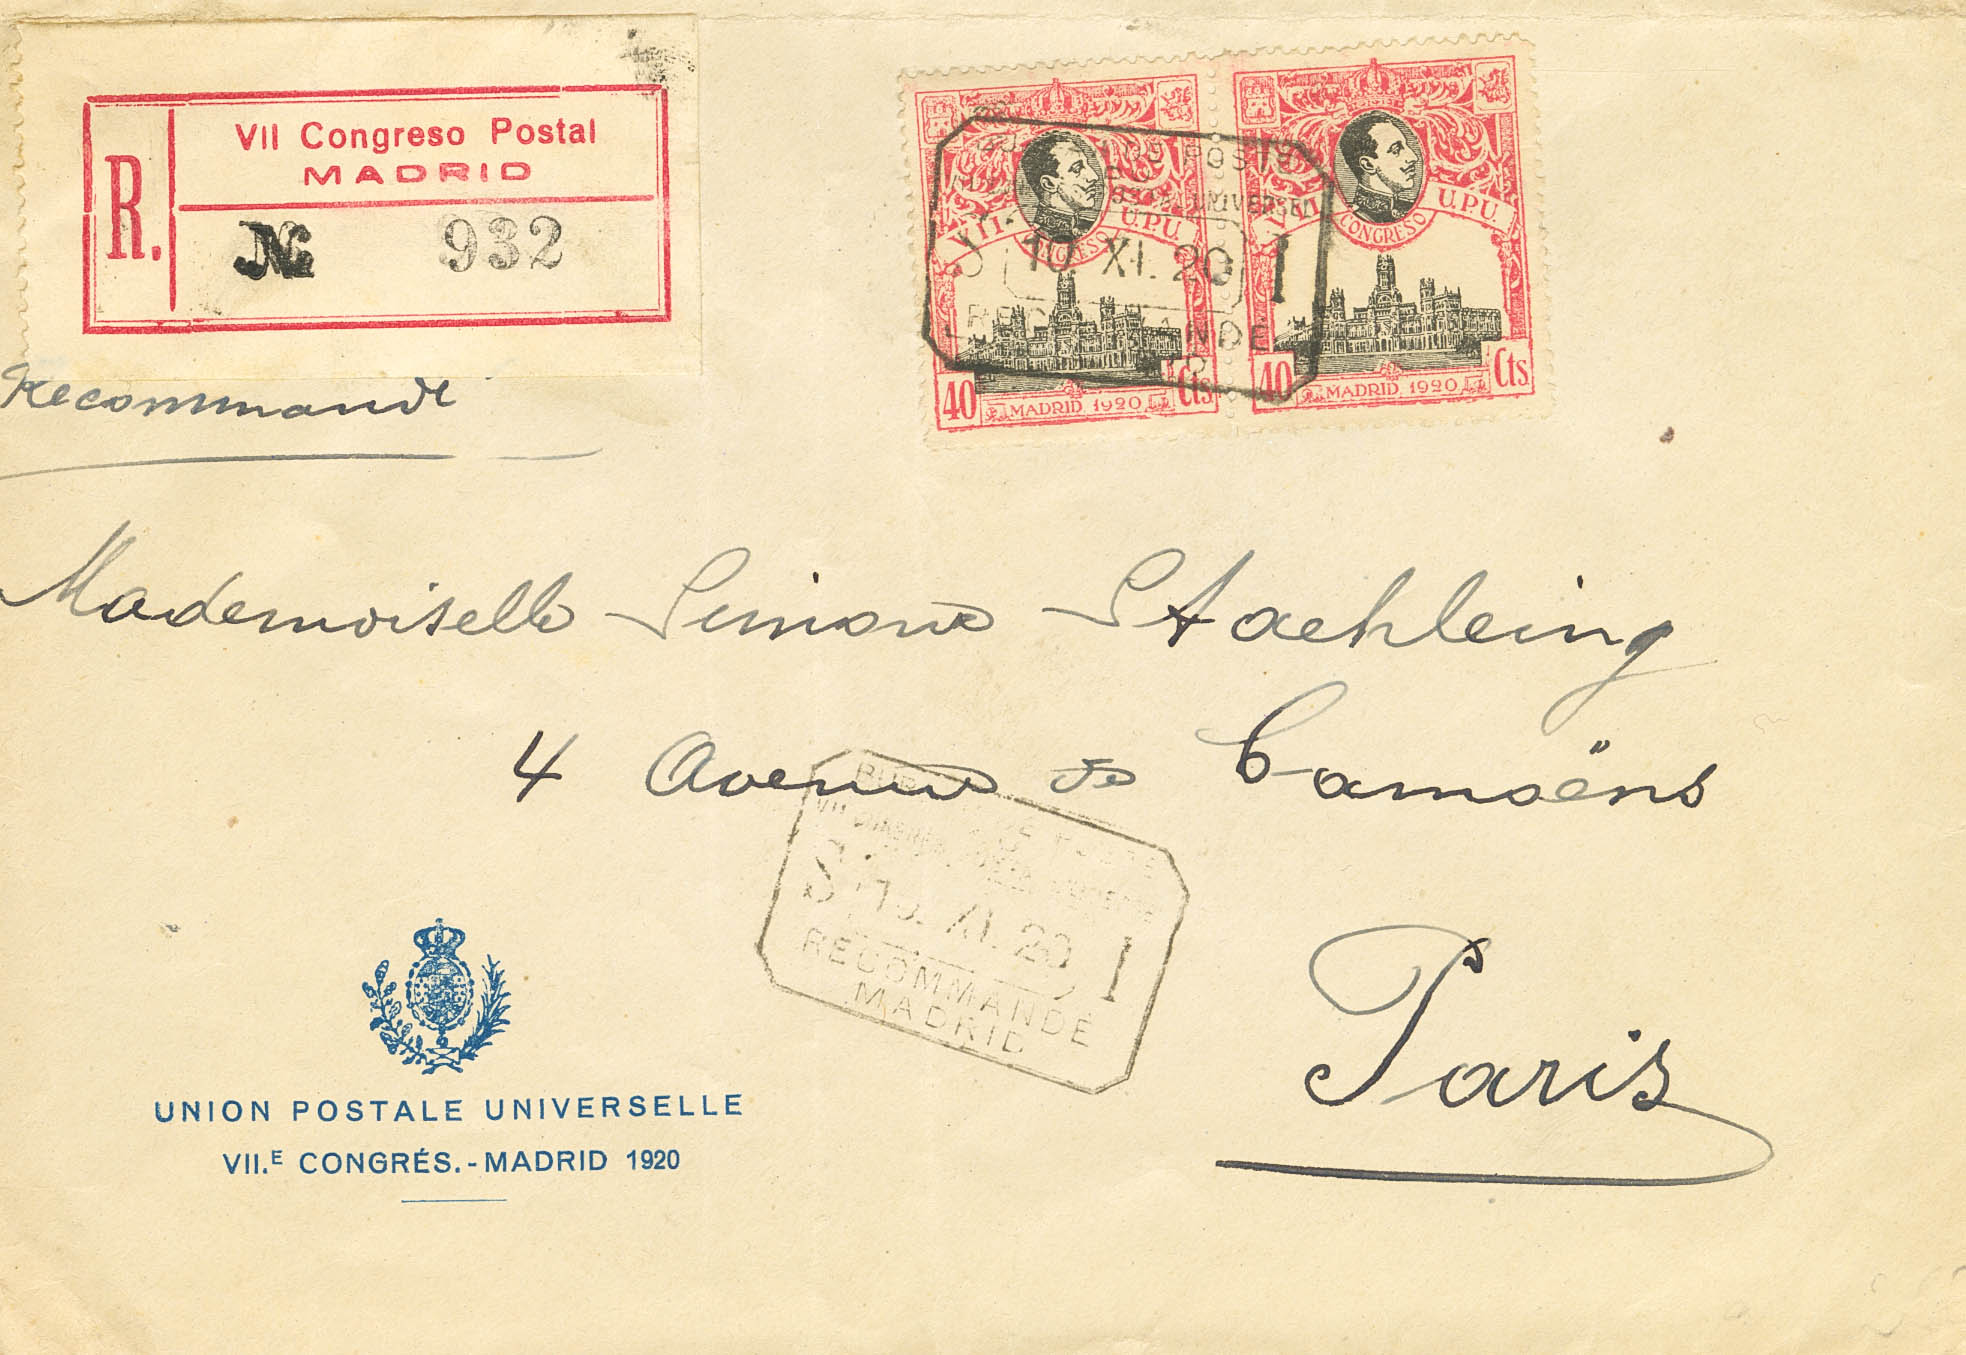 VII Congreso Postal
MADRID
R.
№ 932
Recommandé
VII. CONGRESO U.P.U.
40 Cts
MADRID 1920
VII. CONGRESO U.P.U.
40 Cts
MADRID 1920
POSTE
UNIVERSEL
10 XI. 20 I
RECOMMANDÉ
Mademoiselle Simone Staehleing
4 Avenue de Camoëns
Paris
S 10. XI. 20 I
RECOMMANDÉ
MADRID
UNION POSTALE UNIVERSELLE
VII.E CONGRÉS.-MADRID 1920